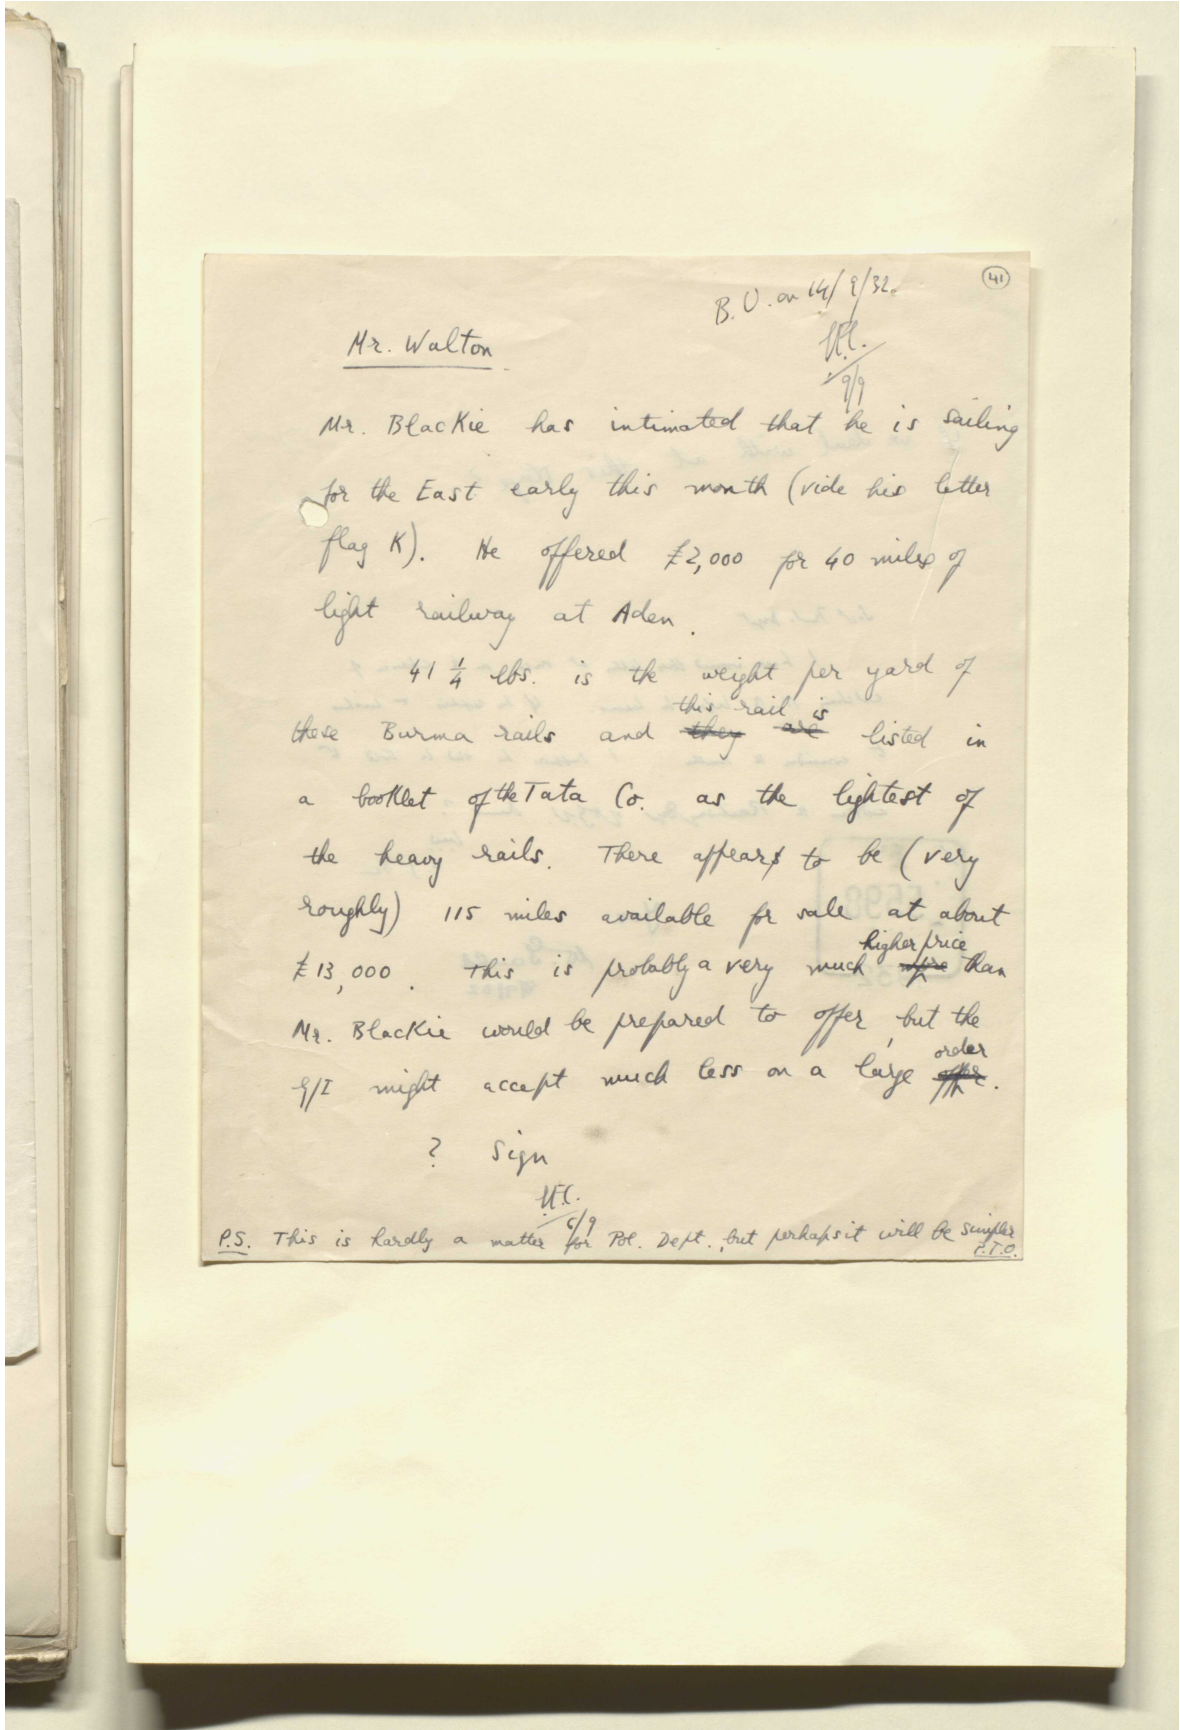 41
B.U. on 14/9/32.
9/9
Mr. Walton
Mr. Blackie has intimated that he is sailing
for the East early this month (vide his letter
flag K). He offered £2,000 for 40 miles of
light railway at Aden.
41 1/4 lbs. is the weight per yard of
this rail is
these Burma rails and they are listed in
a booklet of the Tata Co. as the lightest of
the heavy rails. There appears to be (very
roughly) 115 miles available for sale at about
higher price
£13,000. This is probably a very much more than
Mr. Blackie would be prepared to offer, but the
order
G/I might accept much less on a large offer.
? Sign
6/9
P.S. This is hardly a matter for Pol. Dept., but perhaps it will be simpler
P.T.O.